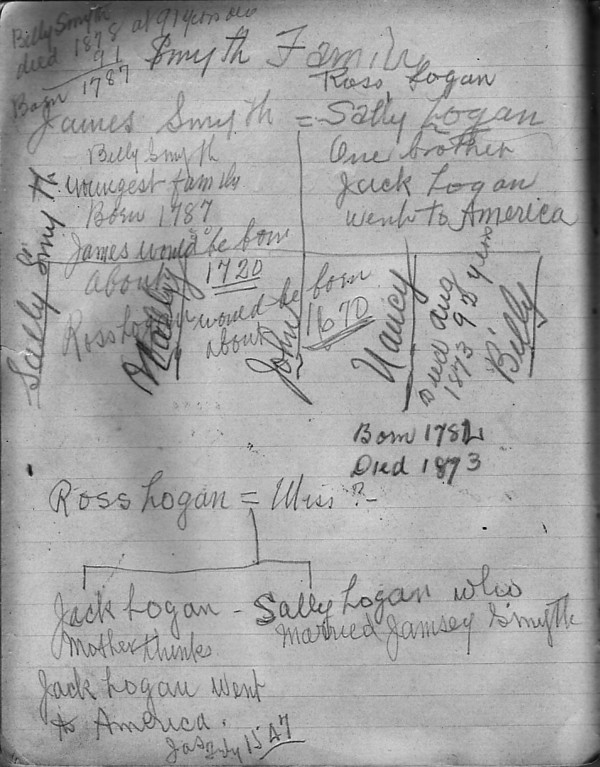 Billy Smyth
died 1878 at 91 years old
91
Born 1787
Smyth Family
Ross Logan
James Smyth = Sally Logan
Billy Smyth
youngest family
Born 1787
James would be born
about 1720
Ross Logan would be born
about 1670
One brother
Jack Logan
went to America
Sally Smyth
Matty
John
Nancy
Died Aug
1873 92 years
Billy
Born 1782
Died 1873
Ross Logan = Miss ?-
Jack Logan - Sally Logan who
married Jamsey Smyth
Mother thinks
Jack Logan went
to America.
15 47